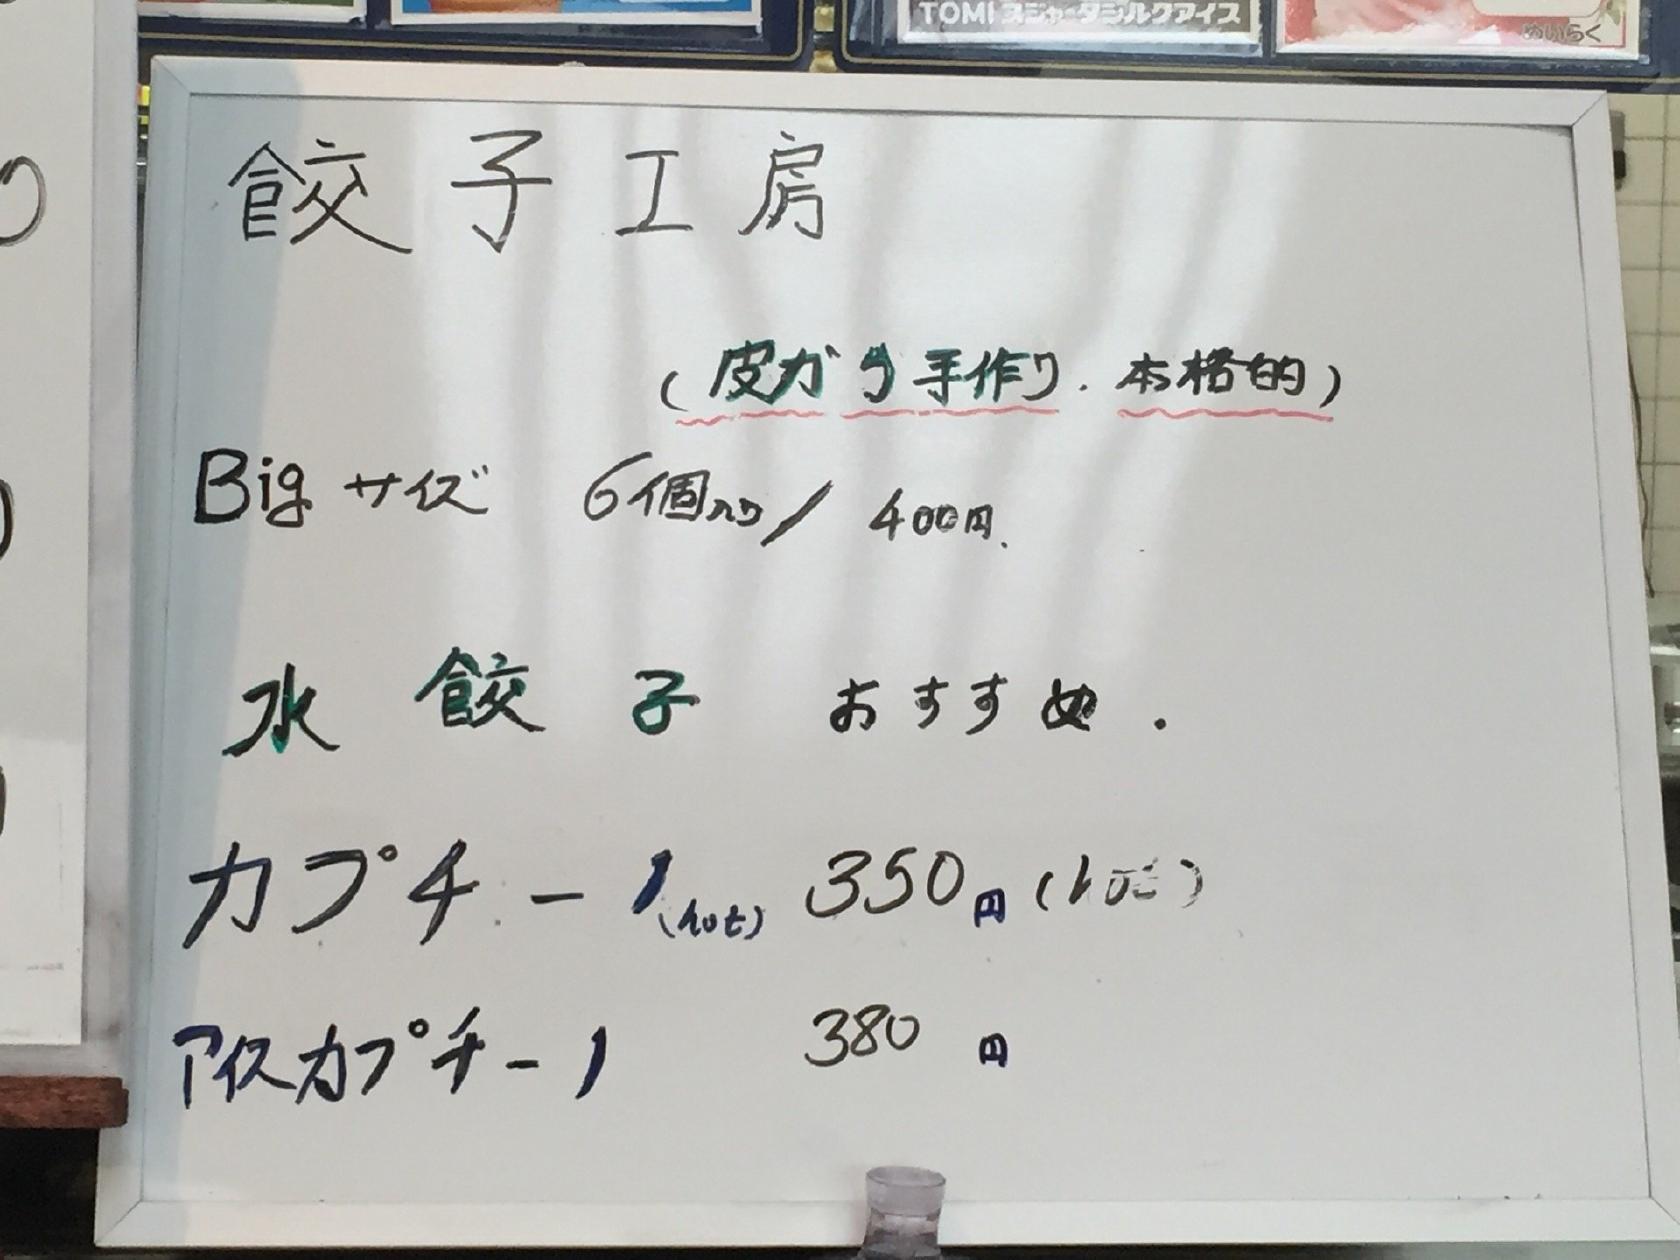 TOMI スジャータシルクアイス
めいらく
餃子工房
(皮から手作り. 本格的)
Bigサイズ 6個入り/400円.
水餃子 おすすめ.
カプチーノ(hot) 350円(hot)
アイスカプチーノ 380円